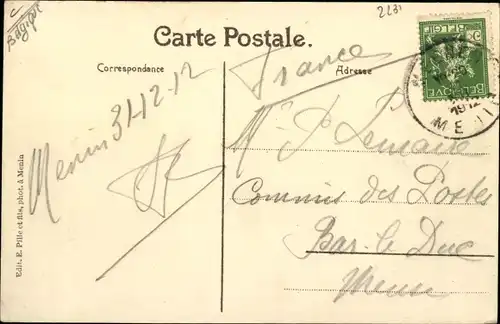 Belgique
2231
Carte Postale.
Correspondance
Adresse
France
BELGIE
BELGIQUE
1912
Menin 31-12-12
Mr P Lemaire
Commis des Postes
Bar-le Duc
Meuse
Edit. E. Pille et fils, phot. à Menin